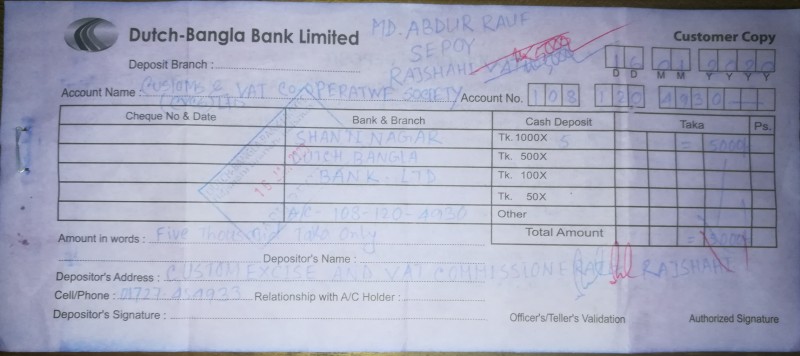 Dutch-Bangla Bank Limited
MD. ABDUR RAUF
SEPOY
RAJSHAHI VAT
Customer Copy
Deposit Branch :
16 01 2020
D D M M Y Y Y Y
Account Name : CUSTOMS & VAT CO-OPERATIVE SOCIETY
Account No. 108 120 4930
Cheque No & Date Bank & Branch Cash Deposit Taka Ps.
SHANTI NAGAR Tk. 1000X 5 = 5000/
DUTCH BANGLA Tk. 500X
BANK. LTD Tk. 100X
Tk. 50X
A/C- 108-120-4930 Other
Total Amount = 5000/
Amount in words : Five Thousand Taka Only
Depositor's Name :
Depositor's Address : CUSTOM EXCISE AND VAT COMMISSIONERATE RAJSHAHI
Cell/Phone : Relationship with A/C Holder :
Depositor's Signature : Officer's/Teller's Validation Authorized Signature